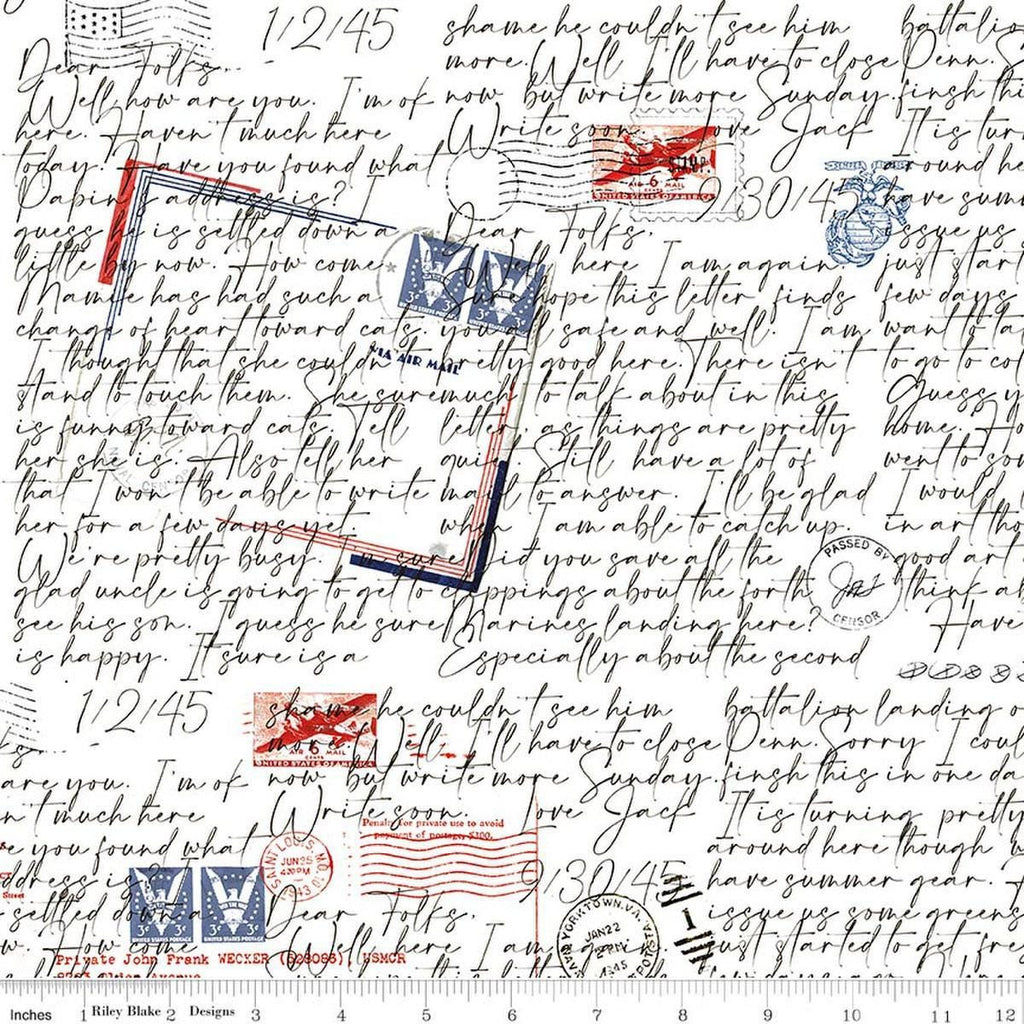 1/2/45
Dear Folks.
Well how are you. I'm ok
here. Haven't much here
today. Have you found what
Papin's address is?
guess he is settled down a
little by now. How come
Mamie has had such a
change of heart toward cats.
I thought that she couldn't
stand to touch them. She sure
is funny toward cats. Tell
her she is. Also tell her
that I won't be able to write
her for a few days yet.
We're pretty busy. I'm sure
glad uncle is going to get to
see his son. I guess he sure
is happy. It sure is a
shame he couldn't see him
more. Well I'll have to close
now but write more Sunday.
Write soon. Love Jack
AIR 6 MAIL
CENTS
UNITED STATES OF AMERICA
9/30/4
Dear Folks.
Well here I am again.
Sure hope this letter finds
you all safe and well. I am
pretty good here. There isn't
much to talk about in this
letter, as things are pretty
quiet. Still have a lot of
mail to answer. I'll be glad
when I am able to catch up.
Did you save all the
clippings about the forth
Marines landing here?
Especially about the second
3¢ 3¢
UNITED STATES POSTAGE
VIA AIR MAIL
battalion
Penn. S
finsh thi
It is tur
around he
have sum
issue us
just start
few days
want to ta
to go to co
Guess y
home. Ho
went to so
I would
in art tho
good art
think ab
Have
PASSED BY
CENSOR
1/2/45
ks.
are you. I'm ok
n't much here
e you found what
ddress is?
settled down a
w. How come
shame he couldn't see him
more. Well I'll have to close
now but write more Sunday.
Write soon. Love Jack
AIR 6 MAIL
CENTS
UNITED STATES OF AMERICA
Penalty for private use to avoid
payment of postage, $300.
SAINT LOUIS, MO.
JUN 25
4 30 PM
1943
3¢ 3¢
UNITED STATES POSTAGE
9/30/45
Dear Folks.
Well here I am again.
YORKTOWN, VA.
JAN 22
1945
battalion landing o
Penn. Sorry I coul
finsh this in one da
It is turning pretty
around here though w
have summer gear.
issue us some greens
just started to get fre
Private John Frank WECKER (528083), USMCR
Street
Inches 1 Riley Blake 2 Designs 3 4 5 6 7 8 9 10 11 12